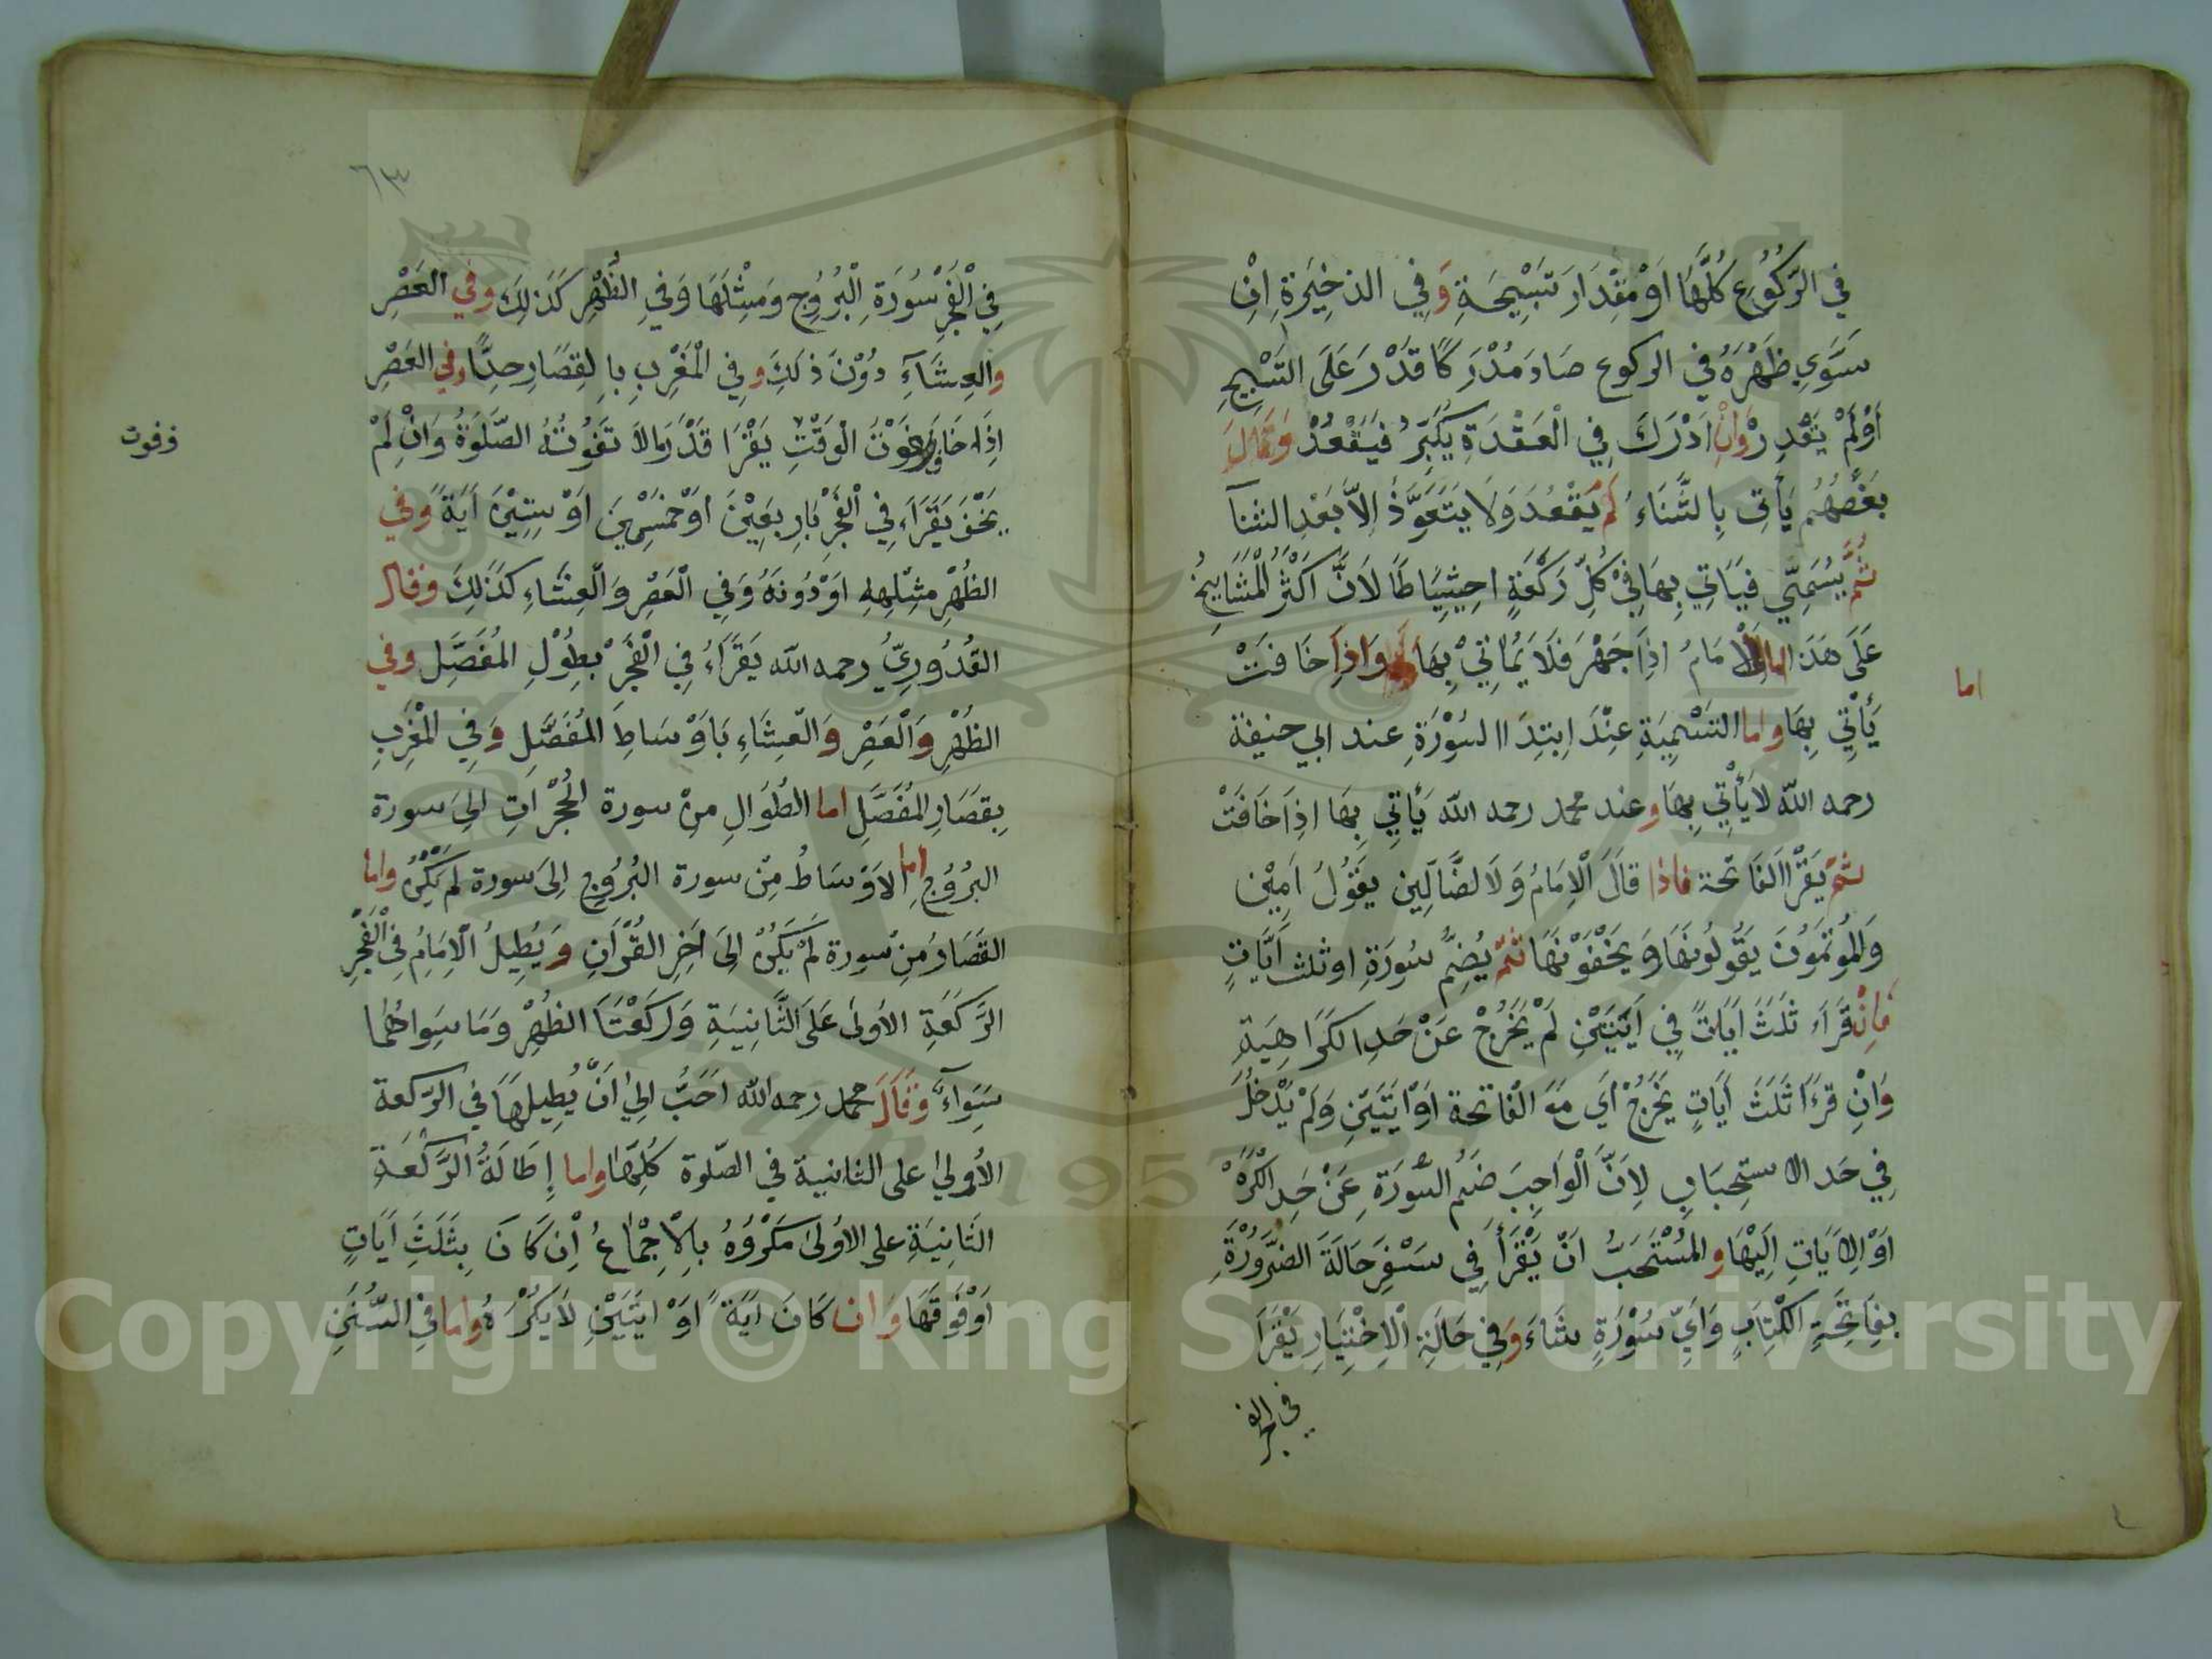 في الرُّكُوعِ كُلِّهَا اَوْ مِقْدَارَ تَسْبِيحَةٍ وَفِي الذخِيْرَةِ اِنْ
سَوَّي ظَهْرَهُ في الركوع صَارَ مُدْرِكًا قَدَرَ عَلَى التَّسْبِيحِ
اَوْلَمْ يَقْدِرْ وَاِنْ اَدْرَكَ فِي الْعَقْدَةِ يُكَبِّرُ فَيَقْعُدْ وَقَالَ
بَعْضُهُم يَأْتِى بِالثَّنَاءِ ثُمَّ يَقْعُدَ وَلَا يَتَعَوَّذُ اِلاَّ بَعْدِ الثنآ
ثُمَّ يُسَمِّي فَيَأتِي بِهَا فِيْ كُلِّ رَكْعَةٍ احِتِيَاطًا لاَنَّ اَكْثَرُ الْمَشَايِخُ
عَلَى هَذَا الْاِمَامُ اِذَا جَهَرَ فَلَا يَأتِيْ بِهَا وَاِذَا خَافَتْ
اما
يَأْتِي بِهَا واما التَسْمِيَةِ عِنْدَ ابتِدَا السُوْرَةِ عند ابي حنيفة
رحمه الله لا يَأْتِي بِهَا وعند محمد رحمه الله يَأتِي بِهَا اِذَا خَافَتْ
ثمَّ يَقْرَا الفَاتحة فاذا قَالَ الْاِمَامُ وَلَا لضَّآلِين يَقُولُ اَمِيْن
وَالمُوتَمُونَ يَقُولُونَهَا وَيَخْفَوْنَهَا ثمّ يُضِمُّ سُورَةِ اوثلث اَيَاتٍ
فَاِنْ قَرَاءَ ثَلَثَ اَيَاتً فِي اَيَتَيْنِ لَمْ يَخْرُجْ عَنْ حَدِ الكَرَاهِيَةِ
وَاِنْ قَرَءَا ثَلَثَ اَيَاتٍ يَخْرُجُ اَي مَعَ الْفَاتحة اَوْ ايَتَيْنِ وَلَمْ يَدْخُلْ
فِي حَد الا ستِحبَابِ لِاَنَّ الْوَاجِبَ ضَم السُّورَةِ عَنْ حَدِ الكْرَهْ
اَوْ الاَيَاتِ اِلَيْهَا والمُسْتَحَبُّ اَنْ يَقْرَأَ فِي سَفَرِ حَالَةَ الضَّرُورَةِ
بِفَاتِحَةِ الكْتِابِ وَاَيِّ سُوْرَةٍ شَاءَ وَفِي حَالَةِ الْاِخْتِيَارِ يَقْرَا
في الفجر
٦٣
فِي الْفَجْرِ سُوُرَةِ الْبُرُوْج وَمِثْلَهَا وَفيِ الظُّهْرِ كَذَلِكَ وفي العَصْرِ
والعِشَآءِ دُوْنَ ذلَكِ وفِي الْمَغْرِبِ بِالقِصَارِ جِدًّا وفي العَصْرِ
اِذَا خَافَ فَوْتَ الْوَقْتِ يَقْرَا قَدْرَ مَالاَ تَفُوتُهُ الصَّلوةُ وَاِنْ لَمْ
ففوت
يَخَفْ يَقْرَاءِ فِي الْفَجْرِ بَارِبعِيْنَ اوْخَمْسِيْنَ اَوْ سِتِيْنَ اَيَةً وَفي
الظُهْرِ مِثْلِهِ اَوْ دُونَهُ وَفي الْعَصْرِ وَالْعِشَاءِ كَذَلِكَ وقال
القُدُورِيُّ رحمه الله يَقْرَاءُ فِي الْفَجْرِ بطِوْلِ المُفَصَّلِ وفي
الظُهْرِ وَالْعَصْرِ وَالْعِشَاءِ بَاوْسَاطِ المُفَصَّلِ وَفي الْمَغْرِبِ
بِقصَارِ المُفَصَّلِ اما الطُوَالِ مِنْ سورة الحُجْرَاتِ اِلىَ سورة
البرُوُجِ اما الاَوْسَاطُ مِنْ سورة البُرُوجِ اِلىَ سورة لَمْ يَكُنْ واما
القصَارُ مِنْ سورة لَمْ يَكُنْ اِلىَ اَخِرِ القُرْاَنِ وَيُطِيلُ الْاِمَامُ فِي الْفَجْرِ
الرَّكَعَةِ الاُولىٰ عَلىَ الثَّانِيَةِ وَركَعْتَا الظُهْرِ وَمَا سِوَاهُمَا
سَوَآءَ وَقَالَ محمد رحمه الله اَحَبُّ اِليَّ اَنْ يُطِيلَهَا في الرَّكعَة
الأولي على الثانية في الصّلوة كُلِّهَا واما اِطَالَةُ الرَّكْعَةِ
الثَانِيَةِ على الاُولىٰ مَكْرُوهُ بالْاِجْمَاعُ اِنْ كَانَ بِثَلَثَ اَيَاتٍ
اَوْفَوقَهَا وَان كَانَ ايَةً اَوَْ ايَتَيْنِ لَايَكْرَهُ واما فِي السُّنَنِ
Copyright © King Saud University
1957